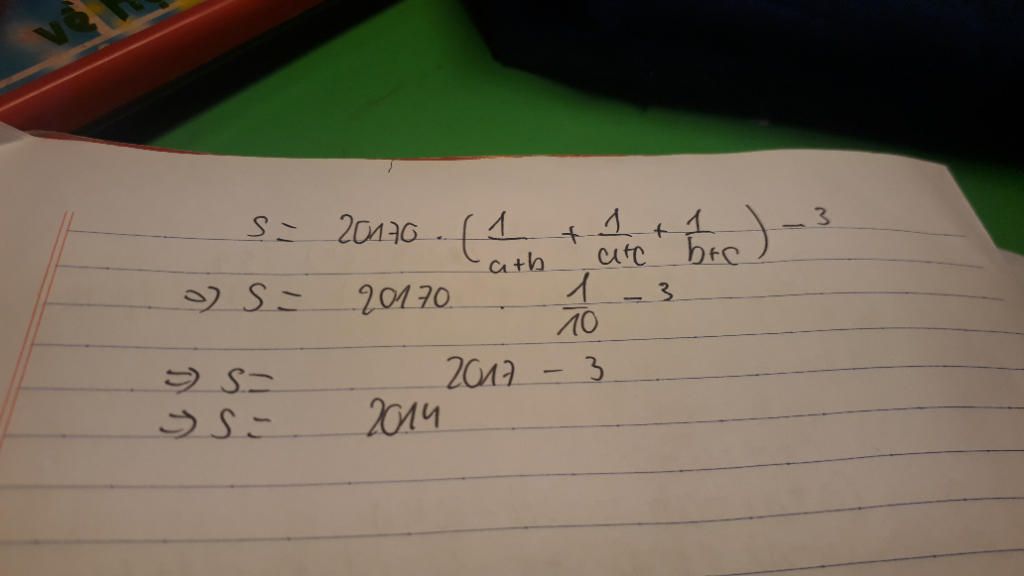 về
S = 20170 . ( 1/a+b + 1/a+c + 1/b+c ) - 3
=> S = 20170 . 1/10 - 3
=> S = 2017 - 3
=> S = 2014